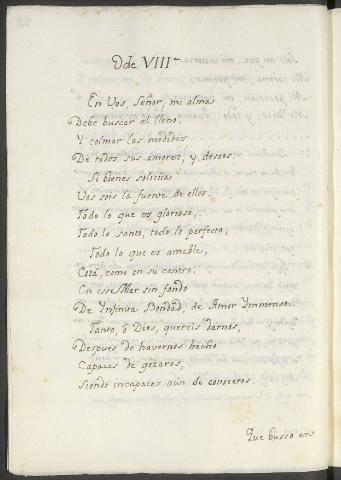 Ode VIII.ª
En Vos, Señor, mi alma
Debe buscar el lleno,
Y colmar las medidas
De todos sus amores, y deseos:
Si bienes solicita
Vos sois la fuente de ellos,
Todo lo que es glorioso,
Todo lo santo, todo lo perfecto,
Todo lo que es amable,
Está, como en su centro,
En esse Mar sin fondo
De Ynfinita Bondad, de Amor Ymmenso.
Tanto, ô Dios, quereis darnos,
Despues de havernos hecho
Capaces de gózaros,
Siendo incapaces aún de conoceros.
Que busco en